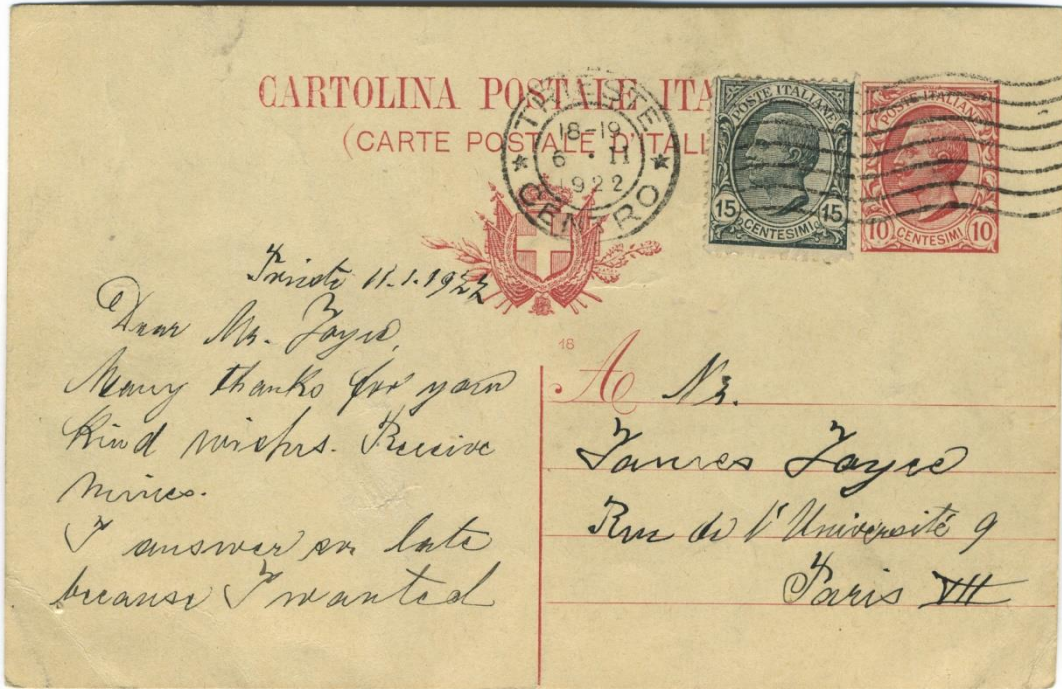 CARTOLINA POSTALE ITA
(CARTE POSTALE D'ITALI
TRIESTE
18-19
6 · II
1922
CENTRO
POSTE ITALIANE
15 15
CENTESIMI
POSTE ITALIANE
10 10
CENTESIMI
Trieste 11.1.1922
Dear Mr. Joyce,
Many thanks for your
kind wishes. Receive
mines.
I answer so late
because I wanted
18
A Mr.
James Joyce
Rue de l'Université 9
Paris VII